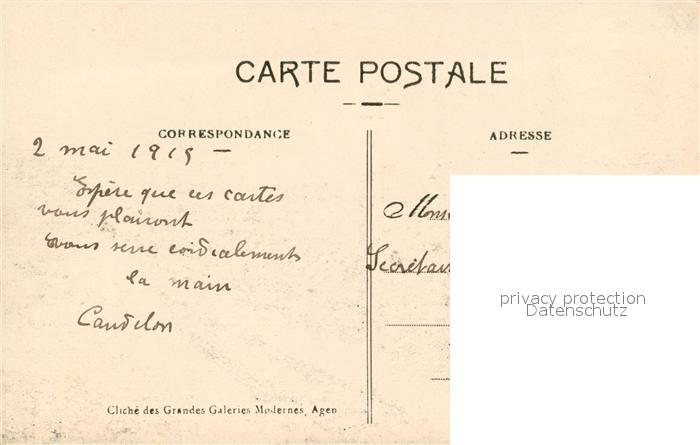 CARTE POSTALE
CORRESPONDANCE
ADRESSE
2 mai 1915
Espère que ces cartes
vous plairont
vous serre cordialements
la main
Caudelon
Mons
Secrétair
privacy protection
Datenschutz
Cliché des Grandes Galeries Modernes, Agen